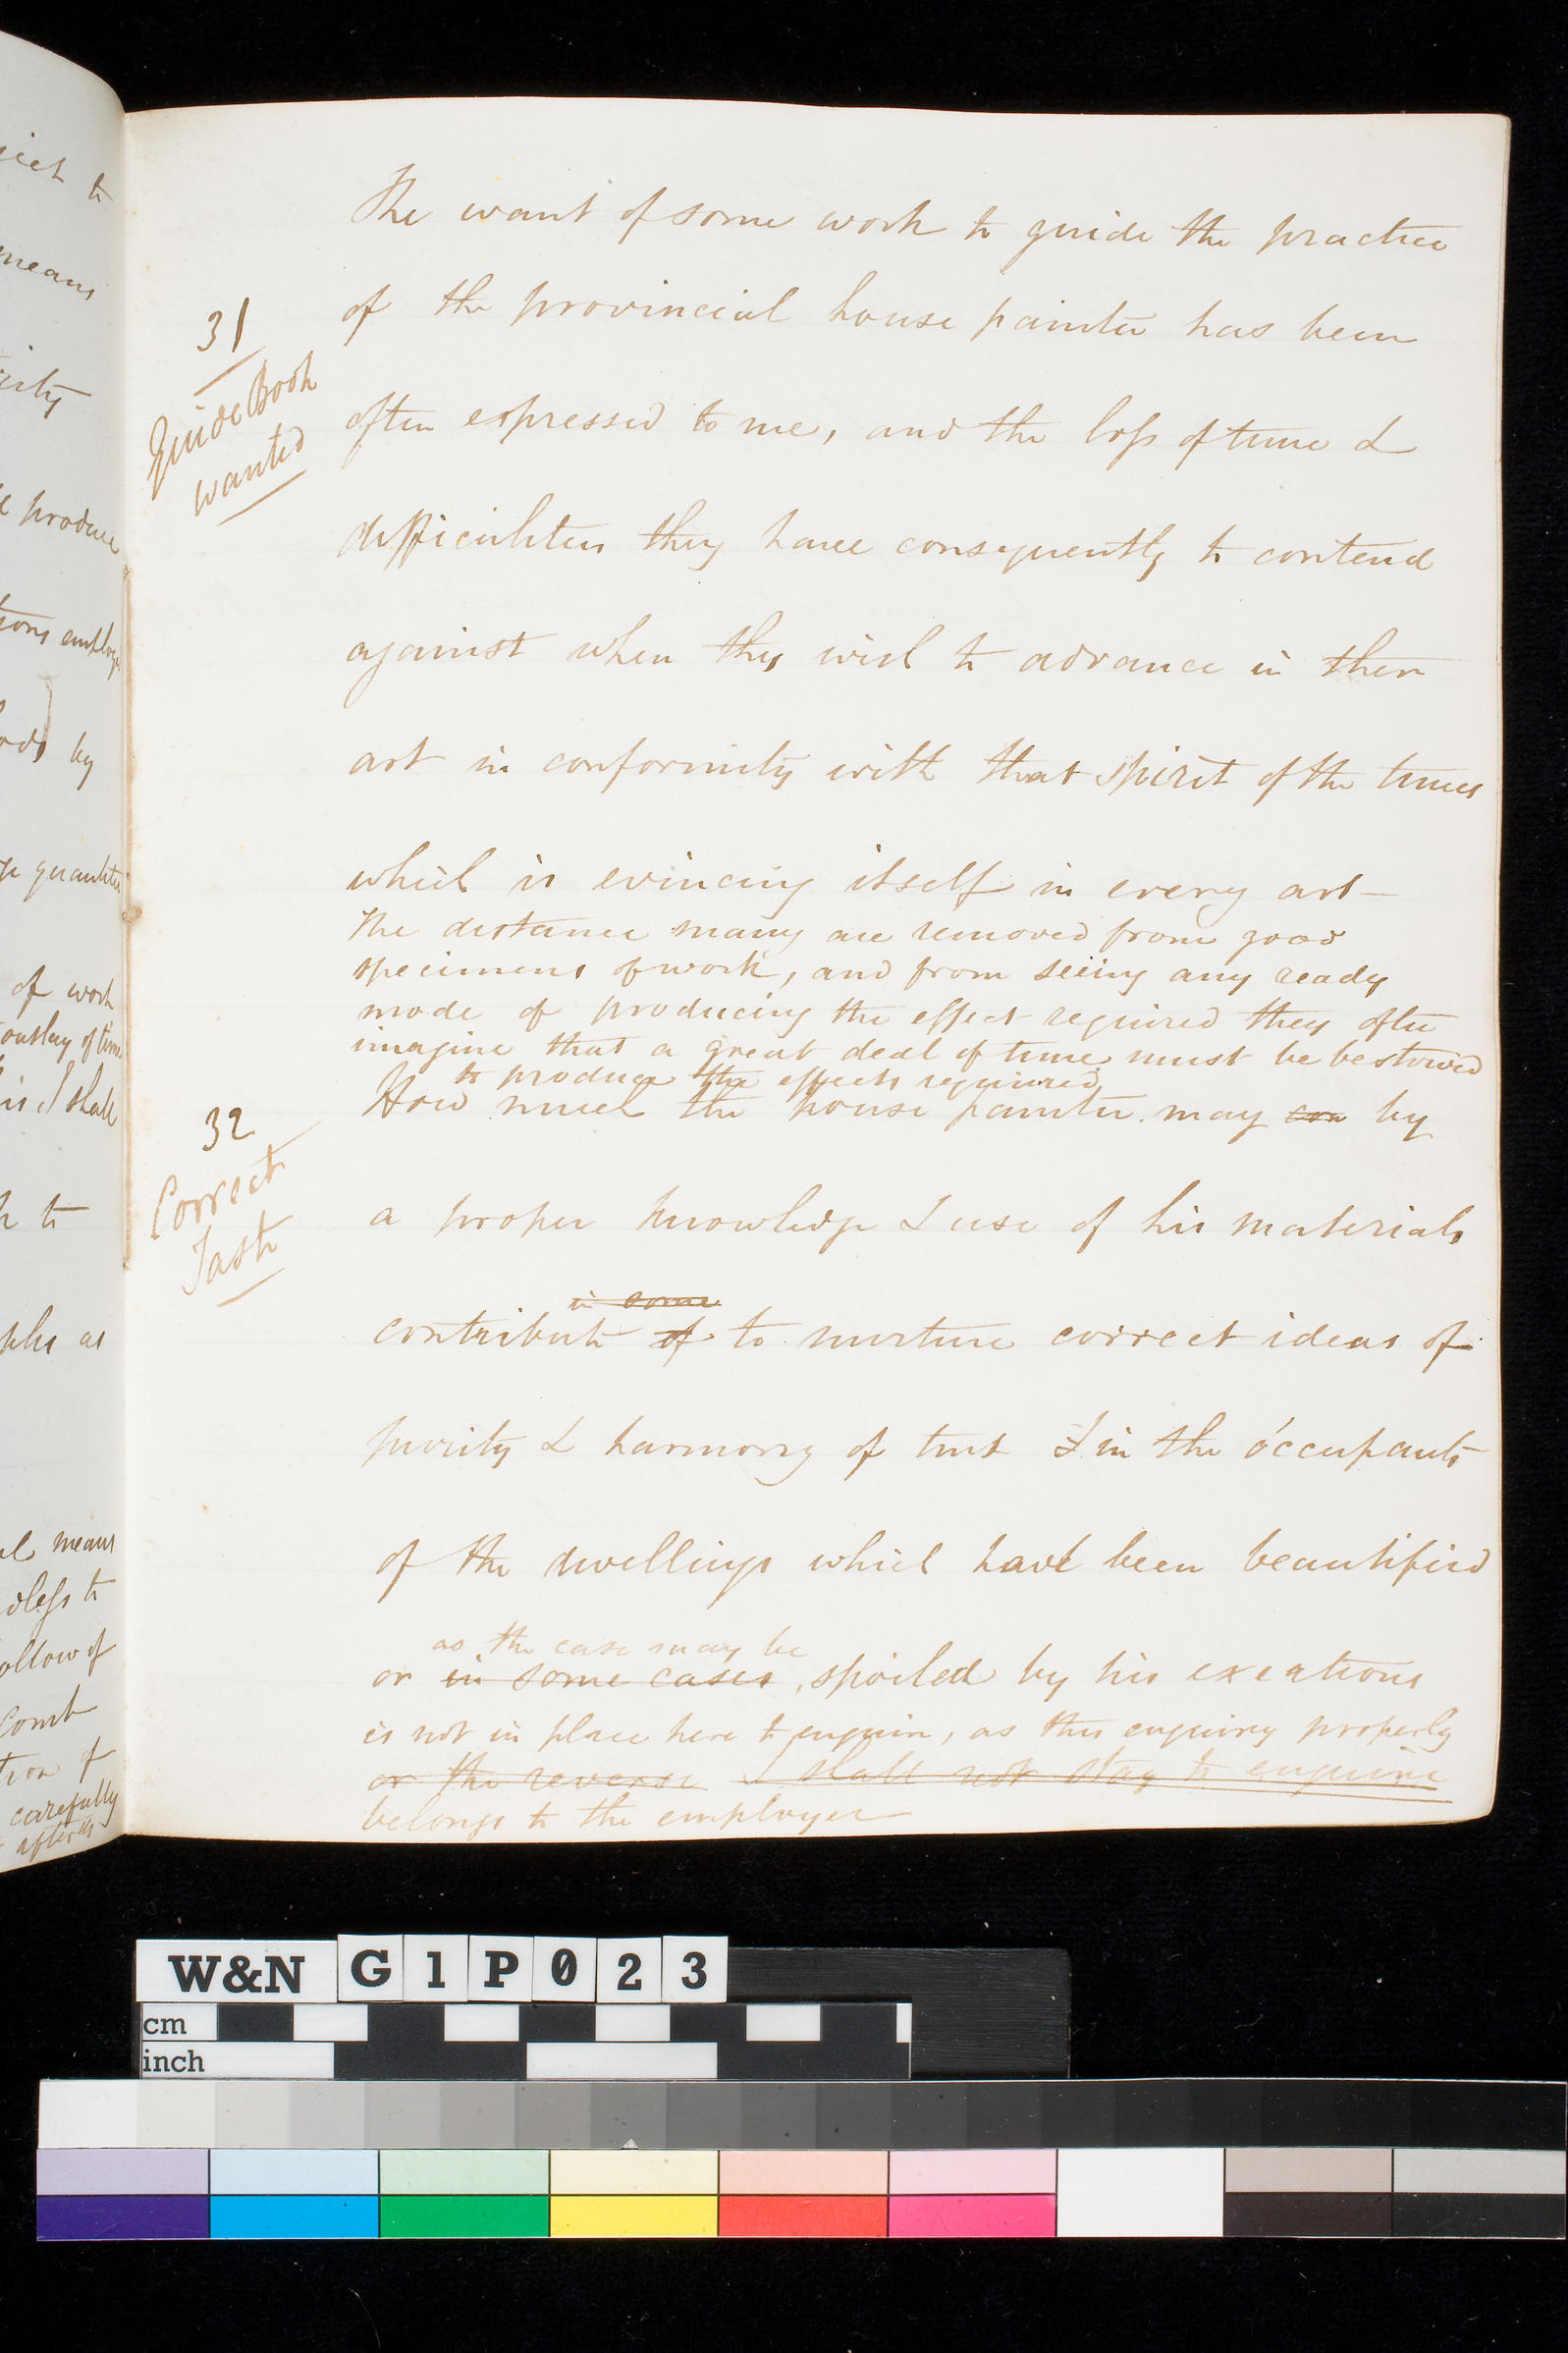 ject to
means
rity
produce
tions employ
ods by
quantities
of work
outlay of time
is I shall
to
as
means
dless to
follow of
Comb
tion of
carefully
afterds
The want of some work to guide the practice
31
of the provincial house painter has been
Guide Book
wanted
often expressed to me, and the loss of time &
difficulties they have consequently to contend
against when they wish to advance in their
art in conformity with that spirit of the times
which is evincing itself in every art—
The distance many are removed from good
specimens of work, and from seeing any ready
mode of producing the effect required they often
imagine that a great deal of time must be bestowed
to produce the effects required
32
Correct
Taste
How much the house painter may can by
a proper knowledge & use of his materials
in some
contribute of to nurture correct ideas of
purity & harmony of tint & in the occupants
of the dwellings which have been beautified
as the case may be
or in some cases, spoiled by his exertions
is not in place here to enquire, as this enquiry properly
or the reverse I shall not stay to enquire
belongs to the employer
W&N G1P023
cm
inch